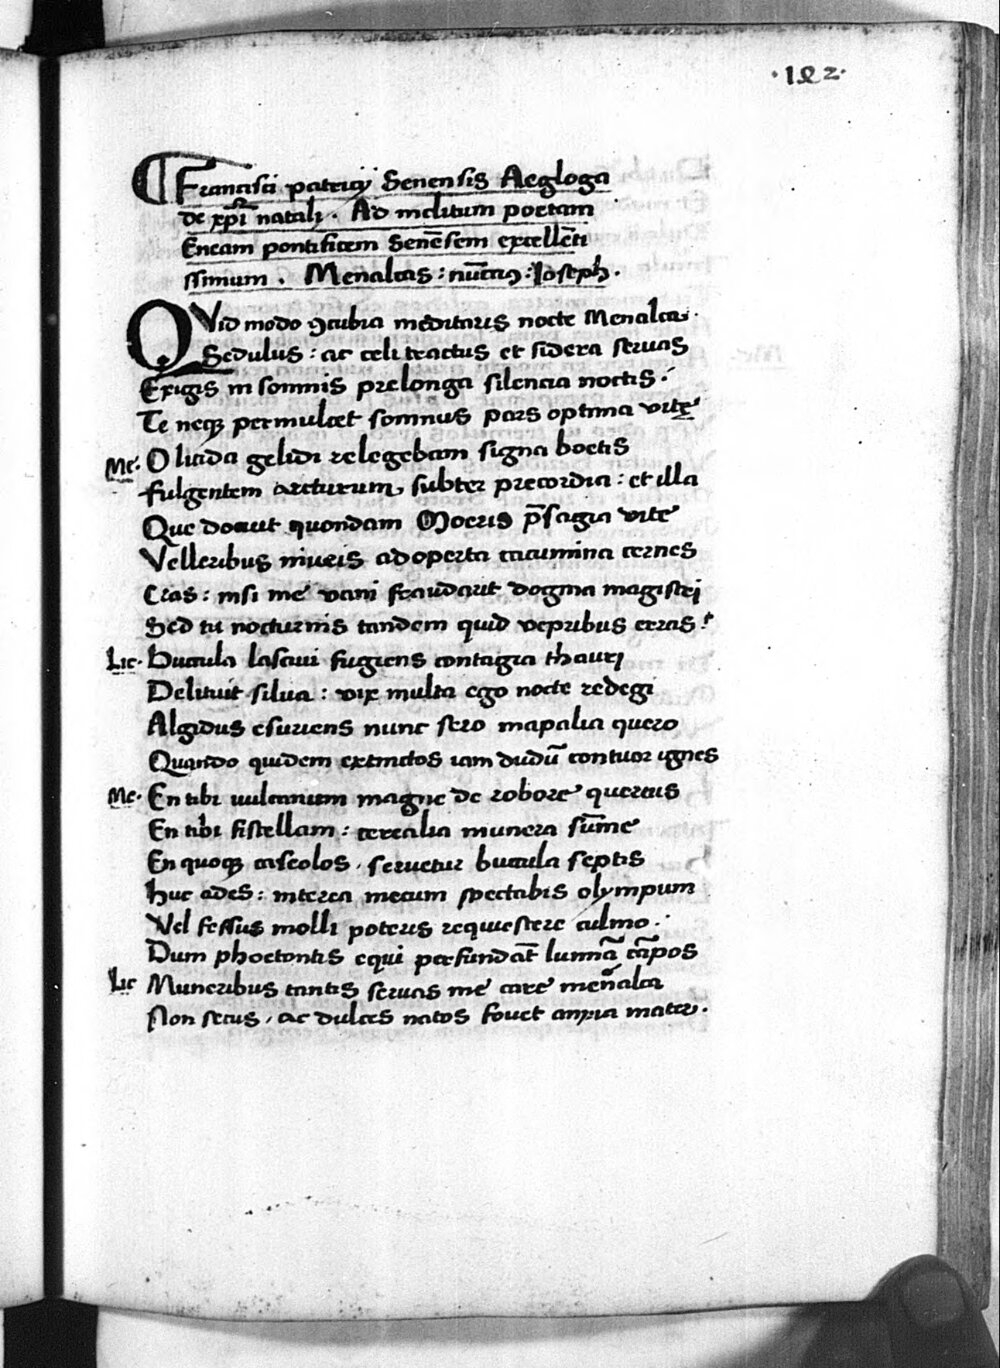 ·182·
Francisci patricij Senensis Aegloga
de xp̄i natali. Ad inclitum poetam
Eneam pontificem Senēsem excellēti
ssimum. Menalcas: nūtiꝰ: Ioseph.
QVid modo ꝯcubia meditaris nocte Menalca.
Sedulus: ac celi tractus et sidera seruas
Exigis in somnis prelonga silencia noctis.
Te neqꝫ permulcet somnus pars optima vitę
Me. O licida gelidi relegebam signa boetis
fulgentem arcturum, subter precordia: et illa
Que docuit quondam Moeris p̄sagia vite
Velleribus niueis adoperta cacumina cernes
Cras: nisi me vani fraudarit dogma magistri
Sed tu nocturnis tandem quid vepribus erras?
Lic. Bucula lasciui fugiens contagia thauri
Delituit silua: vix multa ego nocte redegi
Algidus esuriens nunc sero mapalia quero
Quando quidem extinctos iam dudū contuor ignes
Me. En tibi uulcanum magne de robore quercus
En tibi fistellam: cerealia munera sūme
En quoqꝫ caseolos, seruetur bucula septis
huc ades: interea mecum spectabis olympum
Vel fessus molli poteris requiescere culmo.
Dum phoetontis equi perfundāt lumīa cāpos
Lic Muneribus tantis seruas me care meñalca
Non secus, ac dulces natos fouet anxia mater.